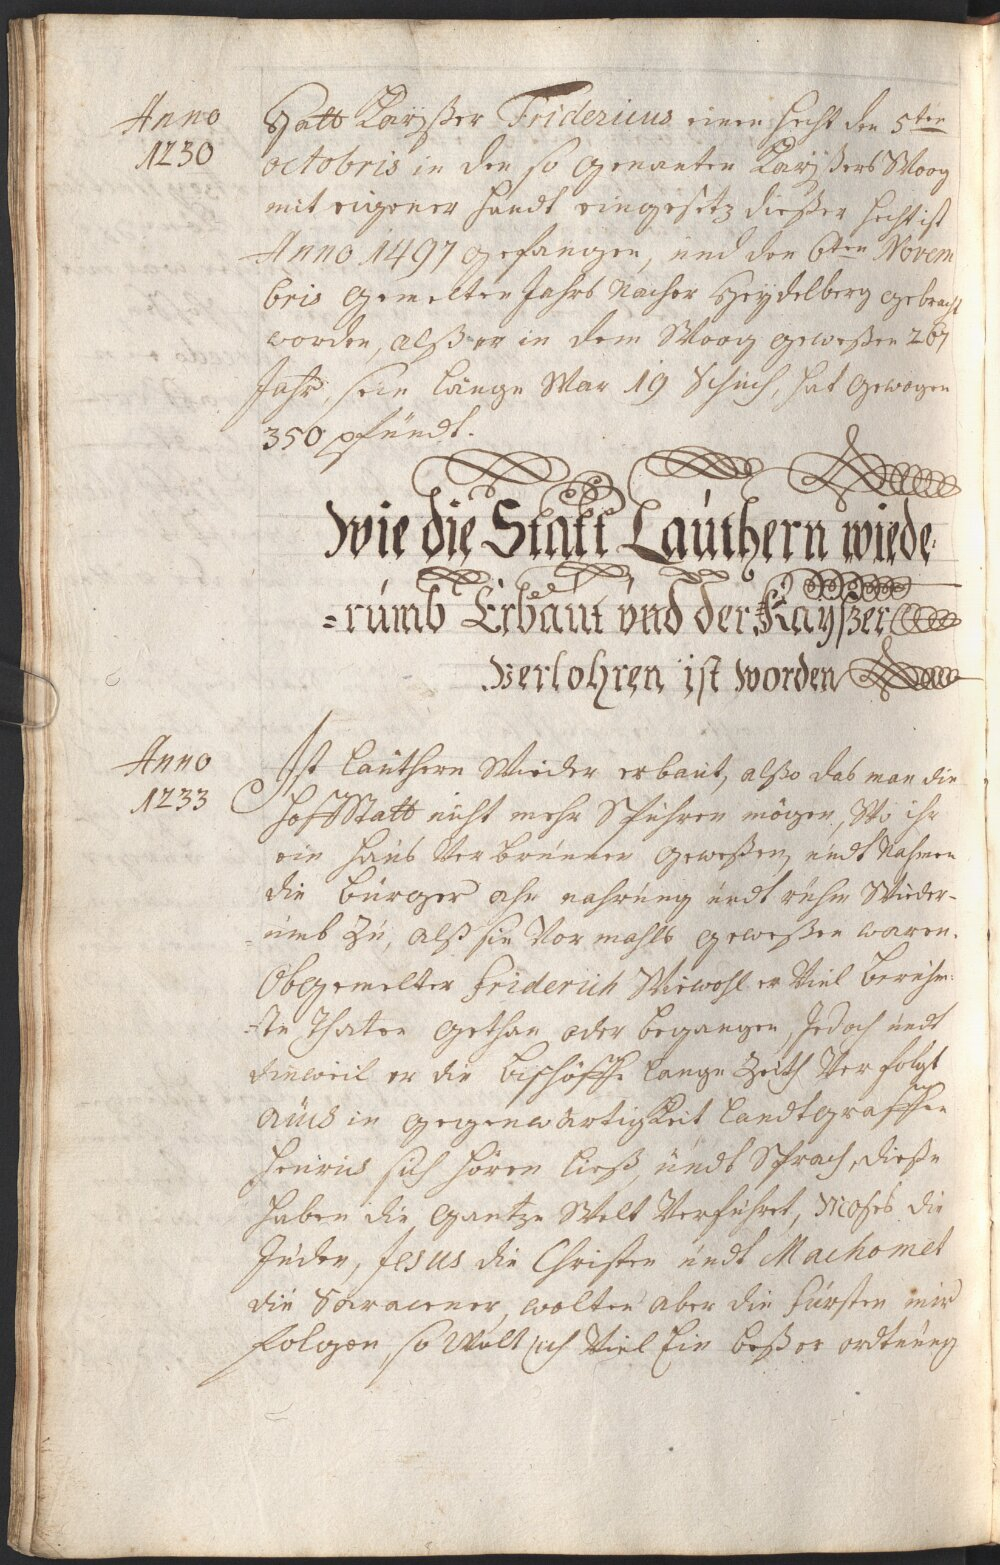 Anno
1230
Hatt Kayßer Fridericus einen hecht den 5ten
octobris in den so genanten Kayßers Woog
mit eigener handt eingesetz dießer hecht ist
Anno 1497 gefangen, und den 6ten Novem
bris gemelten Jahrs nacher Heydelberg gebracht
worden, alß er in dem Woog geweßen 267
Jahr, sein länge War 19 Schuch, hat gewogen
350 pfundt.
Wie die Statt Lauthern wiede-
=rumb Erbaut und der Kayßer
Verlohren ist worden
Anno
1233
Ist Lauthern Wieder erbaut, alßo das man die
hoffStatt nicht mehr Spühren mögen, Wo ihr
ein hauß Verbrunnen geweßen, undt Nahmen
die Bürger ahn nahrung undt ruhm Wieder-
=umb Zu, alß sie Vormahls geweßen waren.
Obgemelter Friderich Wiewohl er Viel berühm-
=te Thaten gethan oder begangen, Jedoch undt
dieweil er die Bischöffe lange Zeith Verfolgt
auch in gegenwärtigkeit landtgraffen
Henrici sich hören ließ, undt Sprach, dieße
haben die gantze Welt Verführet, Moses die
Juden, Jesus die Christen undt Machomet
die Saracener, wolten aber die fürsten mir
folgen, so Wolt ich Viel Ein beßer ordtnung